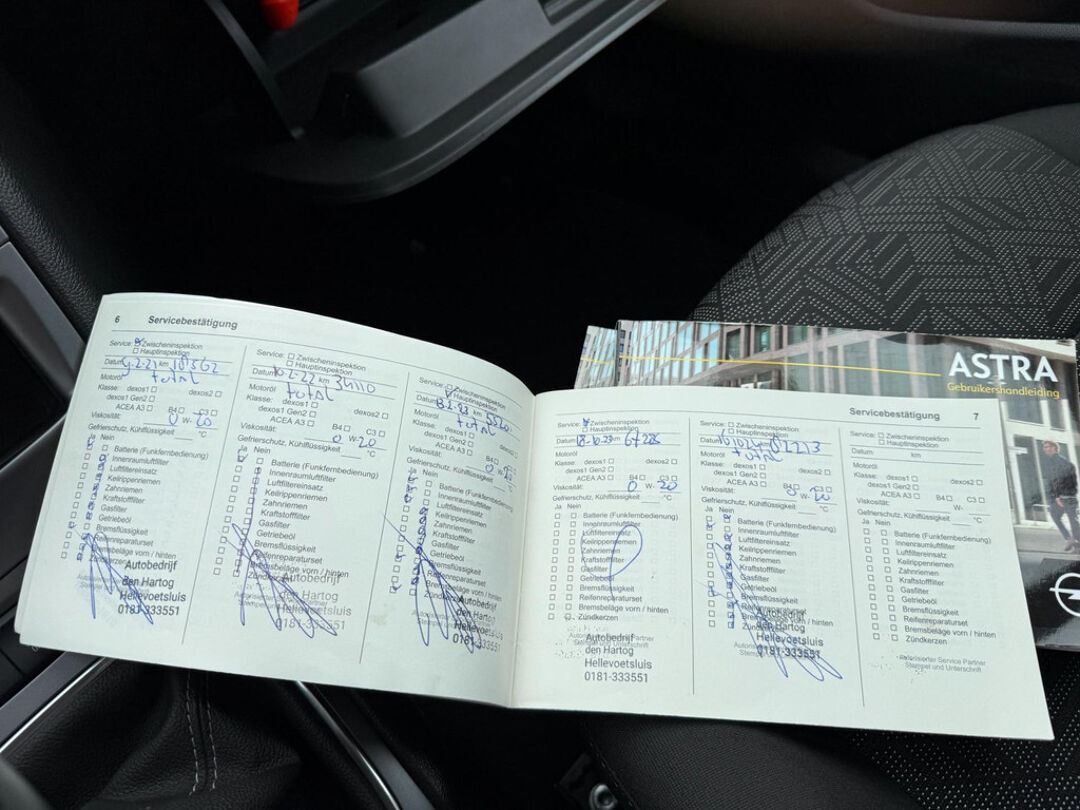 6 Servicebestätigung
Service: Zwischeninspektion
Hauptinspektion
Datum km 18362
Motoröl total
Klasse: dexos1 dexos2
dexos1 Gen2
ACEA A3 B4 C3
Viskosität: 0 W- 20
Gefrierschutz, Kühlflüssigkeit °C
Ja Nein
Batterie (Funkfernbedienung)
Innenraumluftfilter
Luftfiltereinsatz
Keilrippenriemen
Zahnriemen
Kraftstofffilter
Gasfilter
Getriebeöl
Bremsflüssigkeit
Reifenreparaturset
Bremsbeläge vorn / hinten
Autobedrijf
den Hartog
Hellevoetsluis
0181-333551
Service: Zwischeninspektion
Hauptinspektion
Datum km 34110
Motoröl total
Klasse: dexos1 dexos2
dexos1 Gen2
ACEA A3 B4 C3
Viskosität: 0 W-20
Gefrierschutz, Kühlflüssigkeit °C
Ja Nein
Batterie (Funkfernbedienung)
Innenraumluftfilter
Luftfiltereinsatz
Keilrippenriemen
Zahnriemen
Kraftstofffilter
Gasfilter
Getriebeöl
Bremsflüssigkeit
Reifenreparaturset
Bremsbeläge vorn / hinten
Zündkerzen
Autobedrijf
den Hartog
Hellevoetsluis
0181-333551
Service: Zwischeninspektion
Hauptinspektion
Datum km
Motoröl total
Klasse: dexos1 dexos2
dexos1 Gen2
ACEA A3 B4 C3
Viskosität: 0 W- 20
Gefrierschutz, Kühlflüssigkeit °C
Ja Nein
Batterie (Funkfernbedienung)
Innenraumluftfilter
Luftfiltereinsatz
Keilrippenriemen
Zahnriemen
Kraftstofffilter
Gasfilter
Getriebeöl
Bremsflüssigkeit
Reifenreparaturset
Bremsbeläge vorn / hinten
Zündkerzen
Autobedrijf
den Hartog
Hellevoetsluis
0181-
Servicebestätigung 7
Service: Zwischeninspektion
Hauptinspektion
Datum km 67285
Motoröl
Klasse: dexos1 dexos2
dexos1 Gen2
ACEA A3 B4 C3
Viskosität: 0 W- 20
Gefrierschutz, Kühlflüssigkeit °C
Ja Nein
Batterie (Funkfernbedienung)
Innenraumluftfilter
Luftfiltereinsatz
Keilrippenriemen
Zahnriemen
Kraftstofffilter
Gasfilter
Getriebeöl
Bremsflüssigkeit
Reifenreparaturset
Bremsbeläge vorn / hinten
Zündkerzen
Autobedrijf
den Hartog
Hellevoetsluis
0181-333551
Service: Zwischeninspektion
Hauptinspektion
Datum
Motoröl total
Klasse: dexos1 dexos2
dexos1 Gen2
ACEA A3 B4 C3
Viskosität: 0 W- 20
Gefrierschutz, Kühlflüssigkeit °C
Ja Nein
Batterie (Funkfernbedienung)
Innenraumluftfilter
Luftfiltereinsatz
Keilrippenriemen
Zahnriemen
Kraftstofffilter
Gasfilter
Getriebeöl
Bremsflüssigkeit
Reifenreparaturset
Bremsbeläge vorn / hinten
Zündkerzen
Autobedrijf
den Hartog
Hellevoetsluis
0181-333551
Service: Zwischeninspektion
Hauptinspektion
Datum km
Motoröl
Klasse: dexos1 dexos2
dexos1 Gen2
ACEA A3 B4 C3
Viskosität: W-
Gefrierschutz, Kühlflüssigkeit °C
Ja Nein
Batterie (Funkfernbedienung)
Innenraumluftfilter
Luftfiltereinsatz
Keilrippenriemen
Zahnriemen
Kraftstofffilter
Gasfilter
Getriebeöl
Bremsflüssigkeit
Reifenreparaturset
Bremsbeläge vorn / hinten
Zündkerzen
Autorisierter Service Partner
Stempel und Unterschrift
ASTRA
Gebruikershandleiding